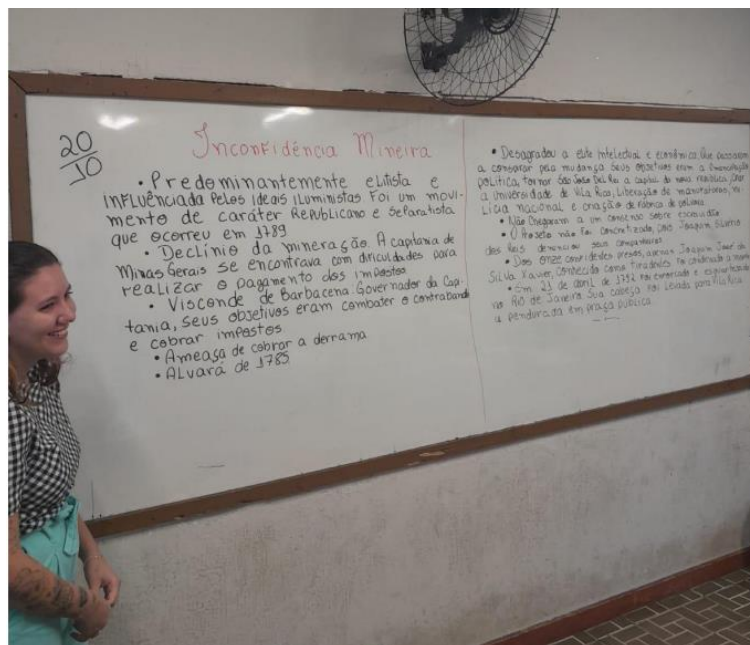 20/10
Inconfidência Mineira
• Predominantemente elitista e
influênciada pelos ideais iluministas. Foi um movi-
mento de caráter Republicano e Separatista
que ocorreu em 1789
• Declínio da mineração. A capitania de
Minas Gerais se encontrava com dificuldades para
realizar o pagamento dos impostos
• Visconde de Barbacena: Governador da Capi-
tania, seus objetivos eram combater o contrabando
e cobrar impostos
• Ameaça de cobrar a derrama
• Alvará de 1785
• Desagradou a elite intelectual e econômica, que passaram
a conspirar pela mudança. Seus objetivos eram a emancipação
política, tornar São João Del Rei a capital da nova república, criar
a Universidade de Vila Rica, liberação de manufaturas, mi-
lícia nacional e criação de fábrica de pólvora
• Não chegaram a um consenso sobre escravidão
• O Projeto não foi concretizado, pois Joaquim Silvério
dos Reis denunciou seus companheiros
• Dos onze confidentes presos, apenas Joaquim José da
Silva Xavier, conhecido como Tiradentes foi condenado a morte
• Em 21 de abril de 1792 foi enforcado e esquartejado
no Rio de Janeiro. Sua cabeça foi levada para Vila Rica
e pendurada em praça pública